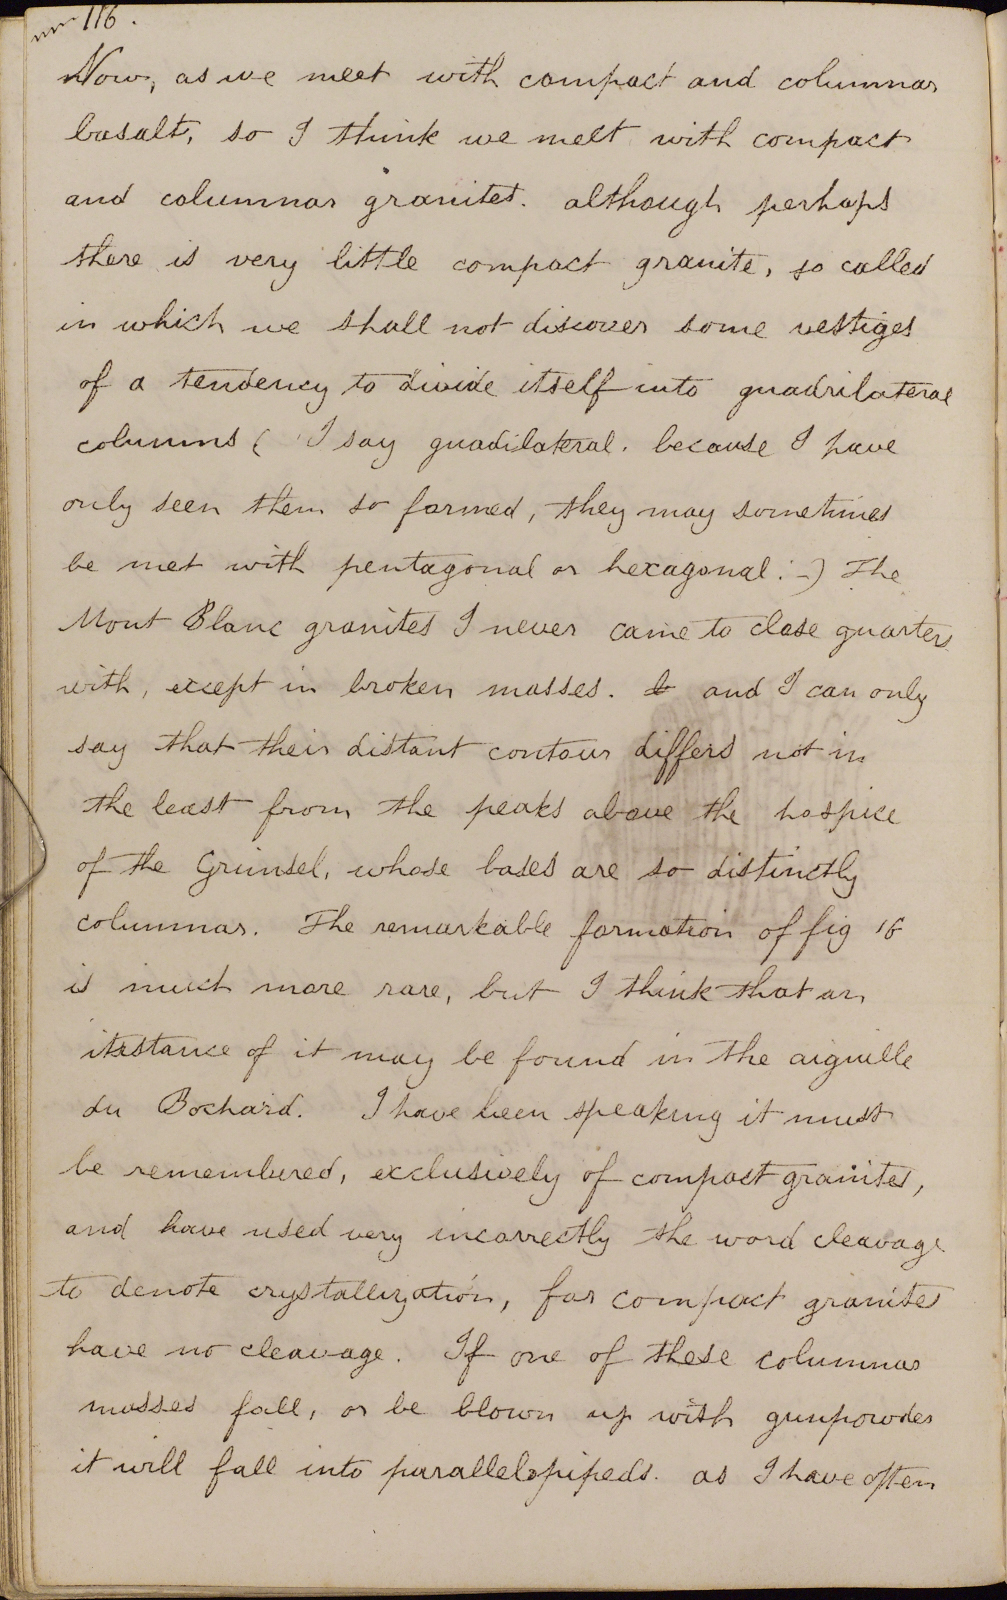 116.
Now, as we meet with compact and columnar
basalt, so I think we melt with compact
and columnar granites. although perhaps
there is very little compact granite, so called
in which we shall not discover some vestiges
of a tendency to divide itself into quadrilateral
columns ( I say quadilateral. because I have
only seen them so formed, they may sometimes
be met with pentagonal or hexagonal :-) The
Mont Blanc granites I never came to close quarters
with, except in broken masses. and I can only
say that their distant contour differs not in
the least from the peaks above the hospice
of the Grimsel, whose bases are so distinctly
columnar. The remarkable formation of fig 16
is much more rare, but I think that an
itstance of it may be found in the aiguille
du Bochard. I have been speaking it must
be remembered, exclusively of compact granites,
and have used very incorrectly the word cleavage
to denote crystallization, for compact granites
have no cleavage. If one of these columnar
masses fall, or be blown up with gunpowder
it will fall into parallelopipeds. as I have often